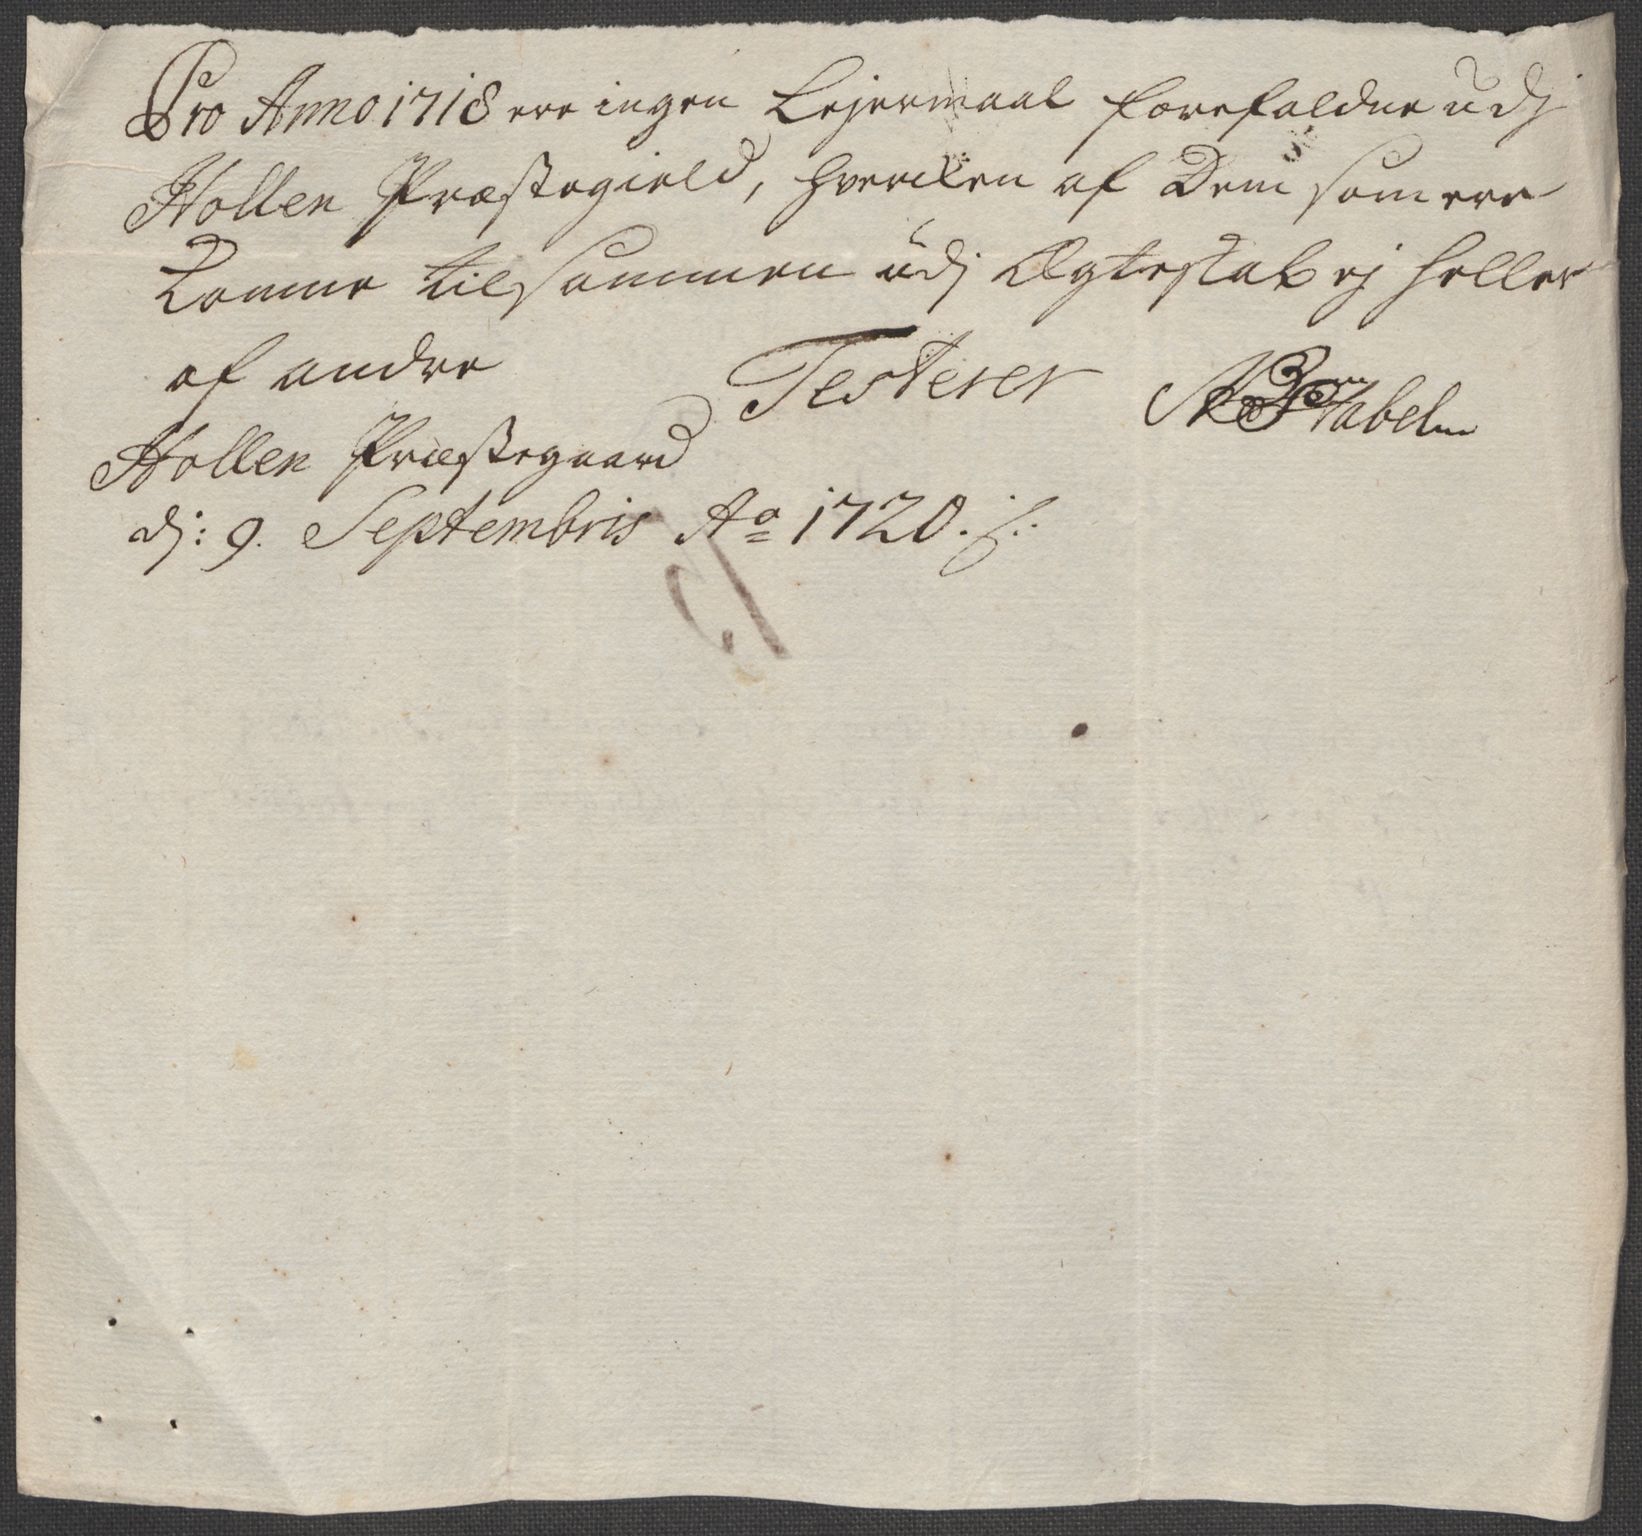 Pro Anno 1718 ere ingen Lejermaal forefaldne udj
Hollen Præstegield, hvercken af Dem som ere
komne tilsammen udj Ægteskab ej heller
af andre
Testerer
Hollen Præstegaard
dj: 9. Septembris Ao 1720.